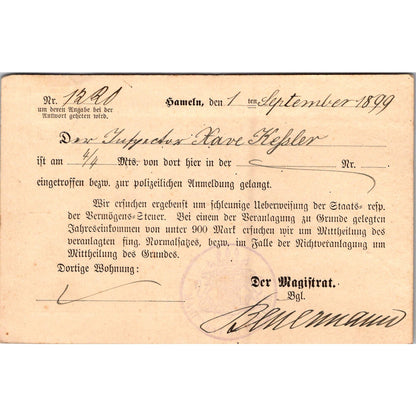 Nr. 1220
um deren Angabe bei der
Antwort gebeten wird.
Hameln, den 1 ten September 1899
Der Inspector Xave Keßler
ist am 4/4 Mts. von dort hier in der Nr.
eingetroffen bezw. zur polizeilichen Anmeldung gelangt.
Wir ersuchen ergebenst um schleunige Ueberweisung der Staats- resp.
der Vermögens-Steuer. Bei einem der Veranlagung zu Grunde gelegten
Jahreseinkommen von unter 900 Mark ersuchen wir um Mittheilung des
veranlagten fing. Normalsatzes, bezw. im Falle der Nichtveranlagung um
Mittheilung des Grundes.
Dortige Wohnung:
Der Magistrat.
Bgl.